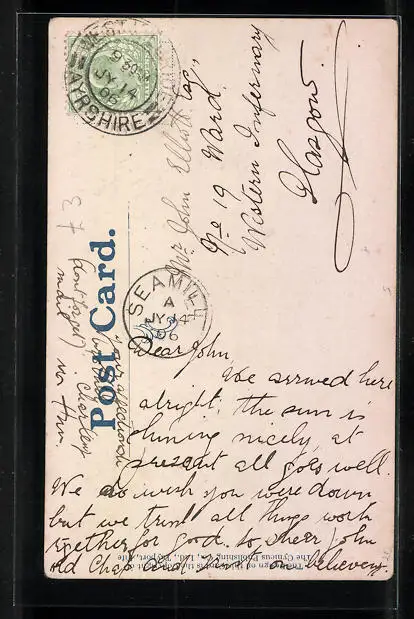 WEST
AYRSHIRE
9 30PM
JY 14
06
Post Card.
Mr John Elliott Esq.,
No 19 Ward.
Western Infermary
Glasgow
SEAMILL
A
JY 14
06
Dear John,
We arrived here
alright, the sun is
shining nicely, at
present all goes well.
We do wish you were down
but we trust all things work
together for good. So cheer John
old Chap
believers.
Charley
in Hrs.